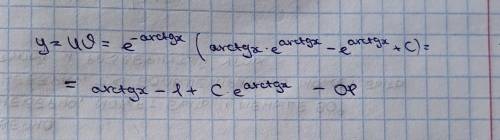 y = uϑ = e^{-arctgx} (arctgx · e^{arctgx} - e^{arctgx} + C) =
= arctgx - 1 + C e^{arctgx} - ОР